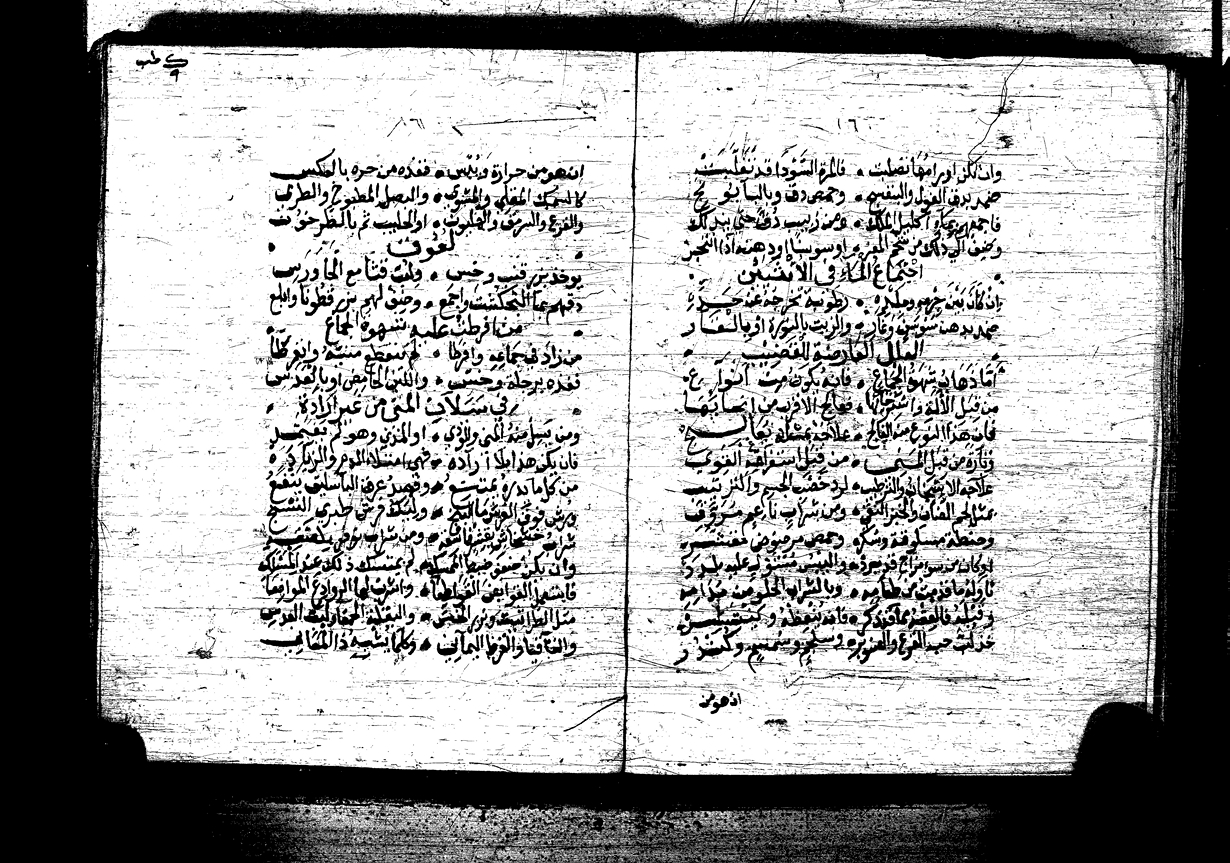 ١٦
وان تكن اورامها تصلبت ۰ فالمرة السودا قد تغلبت
ضمد بدهن الفول والبنفسج ۰ وحمص دق وبالبابونج
فاجمعهم بماء اكليل الملك ۰ ومن زبيب دق حتى
وضف الى ذلك من شحم المعز ۰ او سوسنا او دهنه
اجتماع الماء في الانثيين
ان كان بين جرمه وجلده ۰ رطوبة تخرجه عن حده
ضمد بدهن سوسن وغار ۰ والزيت بالبورة او بالغار
العلل العارضة للقضيب
اما ذهاب شهوة الجماع ۰ فانه يكون من انواع
من قبل الآلة واسترخائها ۰ فعالج الاقرب من اسبابها
فان هذا النوع من الفالج ۰ علاجه بمثله يعالج
وتارة من قبل المني ۰ من قبل استفراغه القوي
علاجه الاسهال والترطيب ۰ لرد خصب الجسم والترتيب
بمثل لحم الضان والخبز النقي ۰ ومن شراب ناعم مروق
وحنطة مسلوقة وسكر ۰ وحمص مرضوض مقشر
لو كان من سوء مزاج قد برد ۰ والبيس مستول عليه
ناوله ما قدمت من طعامه ۰ وبالشراب الحلو من مدامه
وقبله فالعضو مما قد ذكر ۰ فانه ينعظه
خذ لب حب القرع والصنوبر ۰ وسلجم وسمسم وكندر
اذ هو من

١٦
اذ هو من حرارة ويبس ۰ فغذه من حره بالعكس
كالسمك المقلي والمشوي ۰ والبصل المطبوخ والطري
والقرع والسرمق والقلوب ۰ او الحليب ثم بالطرخون
لعوق
يوخذ بزر قنب وخس ۰
دقهم مع الفنجنكشت واجمع ۰ وضف لهم بزر قطونا وابلع
من افرطت عليه شهوة الجماع
من زاد في جماعه وافرطا ۰ لم ينقطع منيه
فغذه برجلة وخس ۰ واللبن الحامض او بالعدس
في سيلان المني من غير ارادة
ومن يسيل منه المني والودي ۰ او المذي وهو لم يتعمد
فان يكن هذا بلا ارادة ۰ فهي امتلاء الدم والزيادة
من كل ما يدره يمتنع ۰ وفصد عرق الباسليق ينفع
ورش فوق القرش ما الثلج ۰ وليكن فرش طري النسج
شراب خشخاش بقشه اشرب ۰ ومن شراب نوفر
وان يكن من ضعف الممسكة ۰ لم يمتسك ذلك عند المسلك
فاستعمل القرابض القواطعا ۰ واشرب لها الروادع الموانعا
مثل الطباشير وبزر الخس ۰ والبقلة الحمقا ولب العدس
والقاقيا والقرط اليماني ۰ وكلما يشبه ذا المعاني